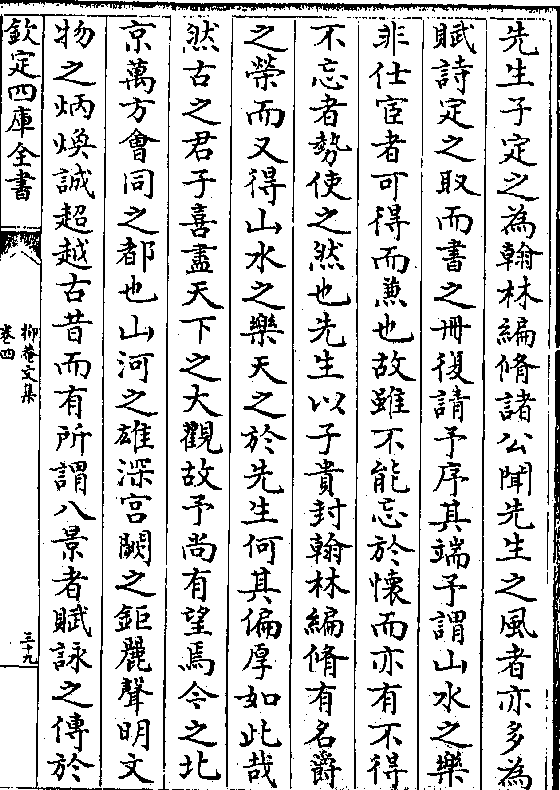 先生子定之為翰林編脩諸公聞先生之風者亦多為
賦詩定之取而書之冊後請予序其端予謂山水之樂
非仕宦者可得而兼也故雖不能忘於懷而亦有不得
不忘者勢使之然也先生以子貴封翰林編脩有名爵
之榮而又得山水之樂天之於先生何其偏厚如此哉
然古之君子喜盡天下之大觀故予尚有望焉今之北
京萬方會同之都也山河之雄深宮闕之鉅麗聲明文
物之炳煥誠超越古昔而有所謂八景者賦詠之傳於
欽定四庫全書
抑菴文集
卷四
三十九